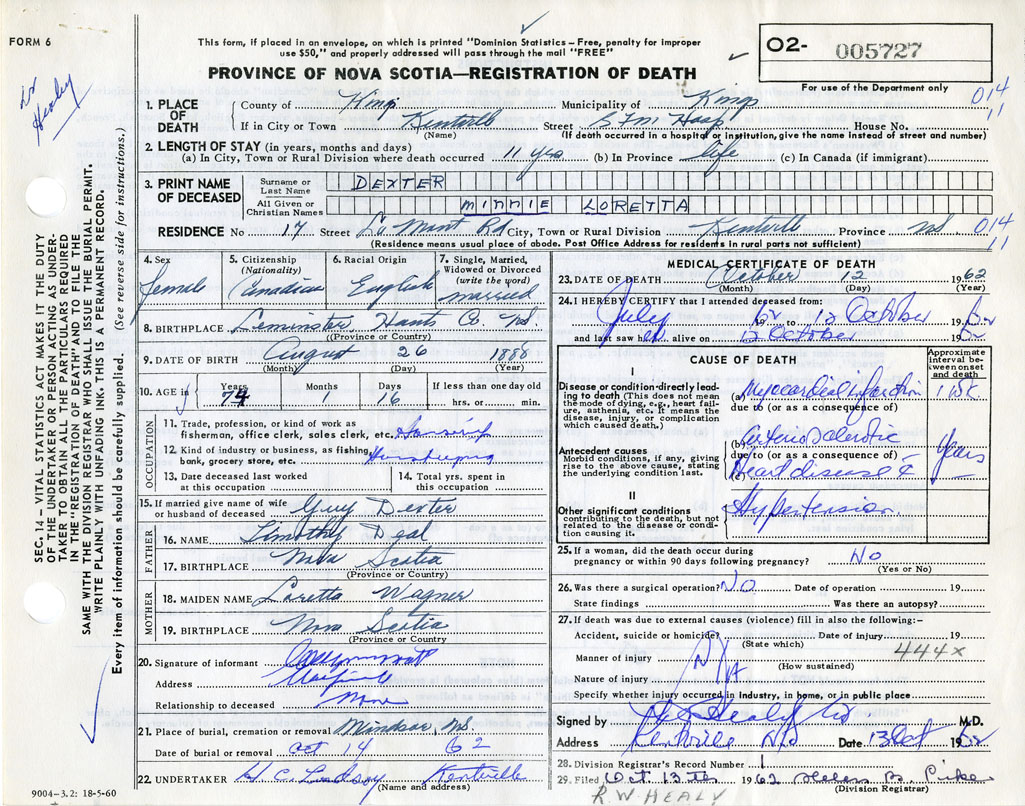 FORM 6
This form, if placed in an envelope, on which is printed "Dominion Statistics – Free, penalty for improper
use $50," and properly addressed will pass through the mail "FREE"
O2- 005727
PROVINCE OF NOVA SCOTIA—REGISTRATION OF DEATH
For use of the Department only
Dr Healey
1. PLACE OF DEATH
County of Kings Municipality of Kings
014
11
If in City or Town Kentville Street House No.
(Name) (If death occurred in a hospital or institution, give the name instead of street and number)
2. LENGTH OF STAY (in years, months and days)
(a) In City, Town or Rural Division where death occurred 11 yrs (b) In Province life (c) In Canada (if immigrant)
3. PRINT NAME OF DECEASED
Surname or Last Name DEXTER
All Given or Christian Names MINNIE LORETTA
RESIDENCE No 17 Street La Mont Rd City, Town or Rural Division Kentville Province NS
014
11
(Residence means usual place of abode. Post Office Address for residents in rural parts not sufficient)
4. Sex
female
5. Citizenship
(Nationality)
Canadian
6. Racial Origin
English
7. Single, Married,
Widowed or Divorced
(write the word)
married
8. BIRTHPLACE Leminster Hants Co NS.
(Province or Country)
9. DATE OF BIRTH August 26 1888
(Month) (Day) (Year)
10. AGE in
Years Months Days If less than one day old
74 1 16 hrs. or min.
OCCUPATION
11. Trade, profession, or kind of work as
fisherman, office clerk, sales clerk, etc.
12. Kind of industry or business, as fishing,
bank, grocery store, etc. Housekeeping
13. Date deceased last worked
at this occupation
14. Total yrs. spent in
this occupation
15. If married give name of wife
or husband of deceased Guy Dexter
FATHER
16. NAME Timothy Deal
17. BIRTHPLACE Nova Scotia
(Province or Country)
MOTHER
18. MAIDEN NAME Loretta Wagner
19. BIRTHPLACE Nova Scotia
(Province or Country
20. Signature of informant
Address
Relationship to deceased None
21. Place of burial, cremation or removal Windsor NS.
Date of burial or removal Oct 14 62
22. UNDERTAKER H. C. Lindsay Kentville
(Name and address)
9004–3.2: 18-5-60
MEDICAL CERTIFICATE OF DEATH
23. DATE OF DEATH October 12 1962
(Month) (Day) (Year)
24. I HEREBY CERTIFY that I attended deceased from:
July 62 19 to 12 October 1962
and last saw her alive on 12 October 1962
CAUSE OF DEATH
Approximate
interval be-
tween onset
and death
I
Disease or condition directly lead-
ing to death (This does not mean
the mode of dying, e.g., heart fail-
ure, asthenia, etc. It means the
disease, injury, or complication
which caused death.)
(a) Myocardial infarction 1 wk
due to (or as a consequence of)
Antecedent causes
Morbid condition, if any, giving
rise to the above cause, stating
the underlying condition last.
(b) Arteriosclerotic years
due to (or as a consequence of)
(c) Heart disease &
II
Other significant conditions
contributing to the death, but not
related to the disease or condi-
tion causing it.
Hypertension.
25. If a woman, did the death occur during
pregnancy or within 90 days following pregnancy? No
(Yes or No)
26. Was there a surgical operation? No Date of operation 19
State findings Was there an autopsy?
27. If death was due to external causes (violence) fill in also the following:-
Accident, suicide or homicide? Date of injury 19
(State which)
444x
Manner of injury N/A
(How sustained)
Nature of injury
Specify whether injury occurred in industry, in home, or in public place
Signed by M.D.
Address Kentville NS Date 13 Oct 1962
28. Division Registrar's Record Number 1
29. Filed Oct 13th 1962 Helen B. Pike
(Division Registrar)
R.W. HEALY
SEC. 14 – VITAL STATISTICS ACT MAKES IT THE DUTY
OF THE UNDERTAKER OR PERSON ACTING AS UNDER-
TAKER TO OBTAIN ALL THE PARTICULARS REQUIRED
IN THE "REGISTRATION OF DEATH" AND TO FILE THE
SAME WITH THE DIVISION REGISTRAR WHO SHALL ISSUE THE BURIAL PERMIT.
WRITE PLAINLY WITH UNFADING INK–THIS IS A PERMANENT RECORD.
Every item of information should be carefully supplied. (See reverse side for instructions.)